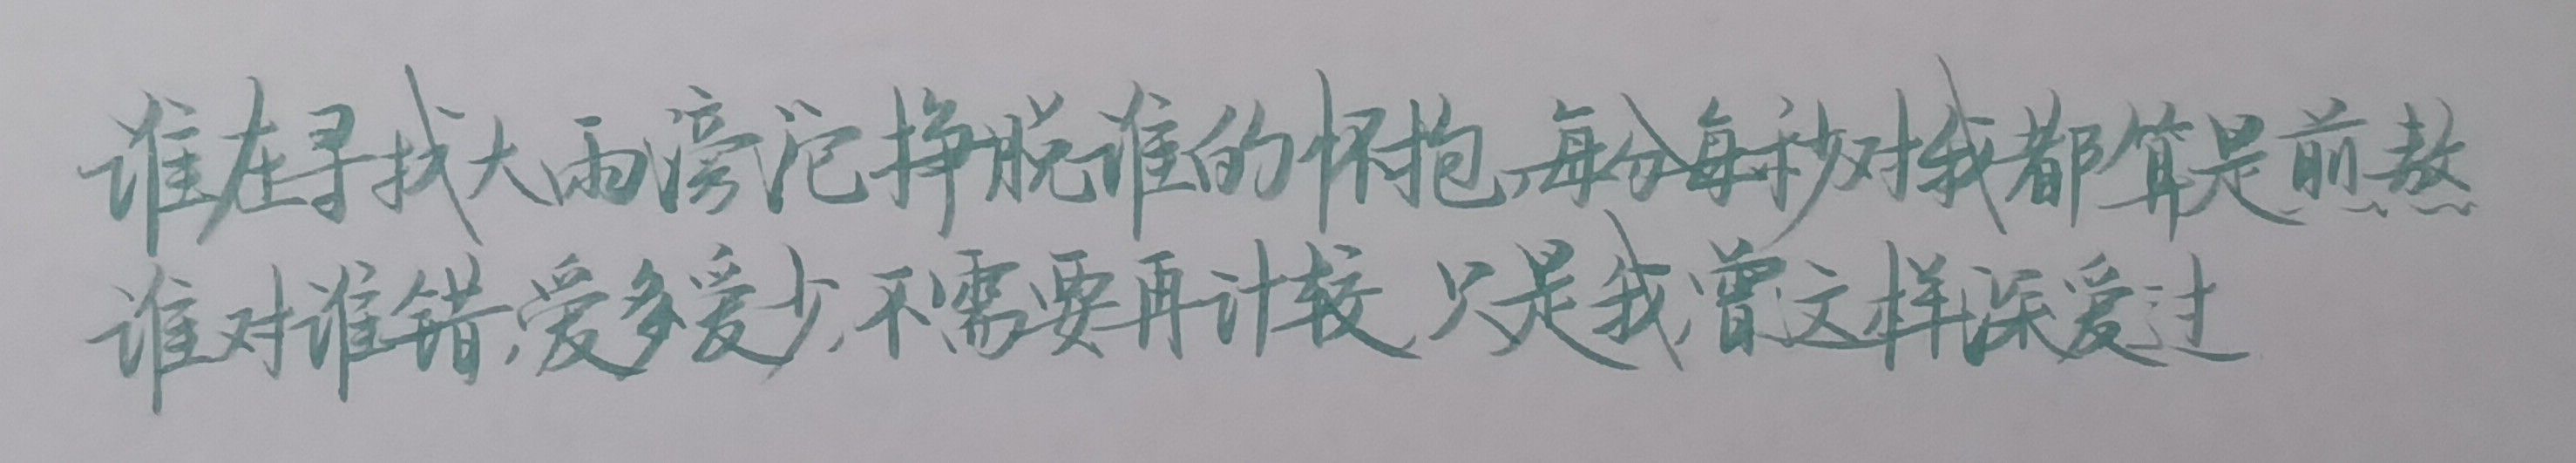 谁在寻找大雨滂沱挣脱谁的怀抱,每分每秒对我都算是煎熬
谁对谁错,爱多爱少,不需要再计较,只是我曾这样深爱过